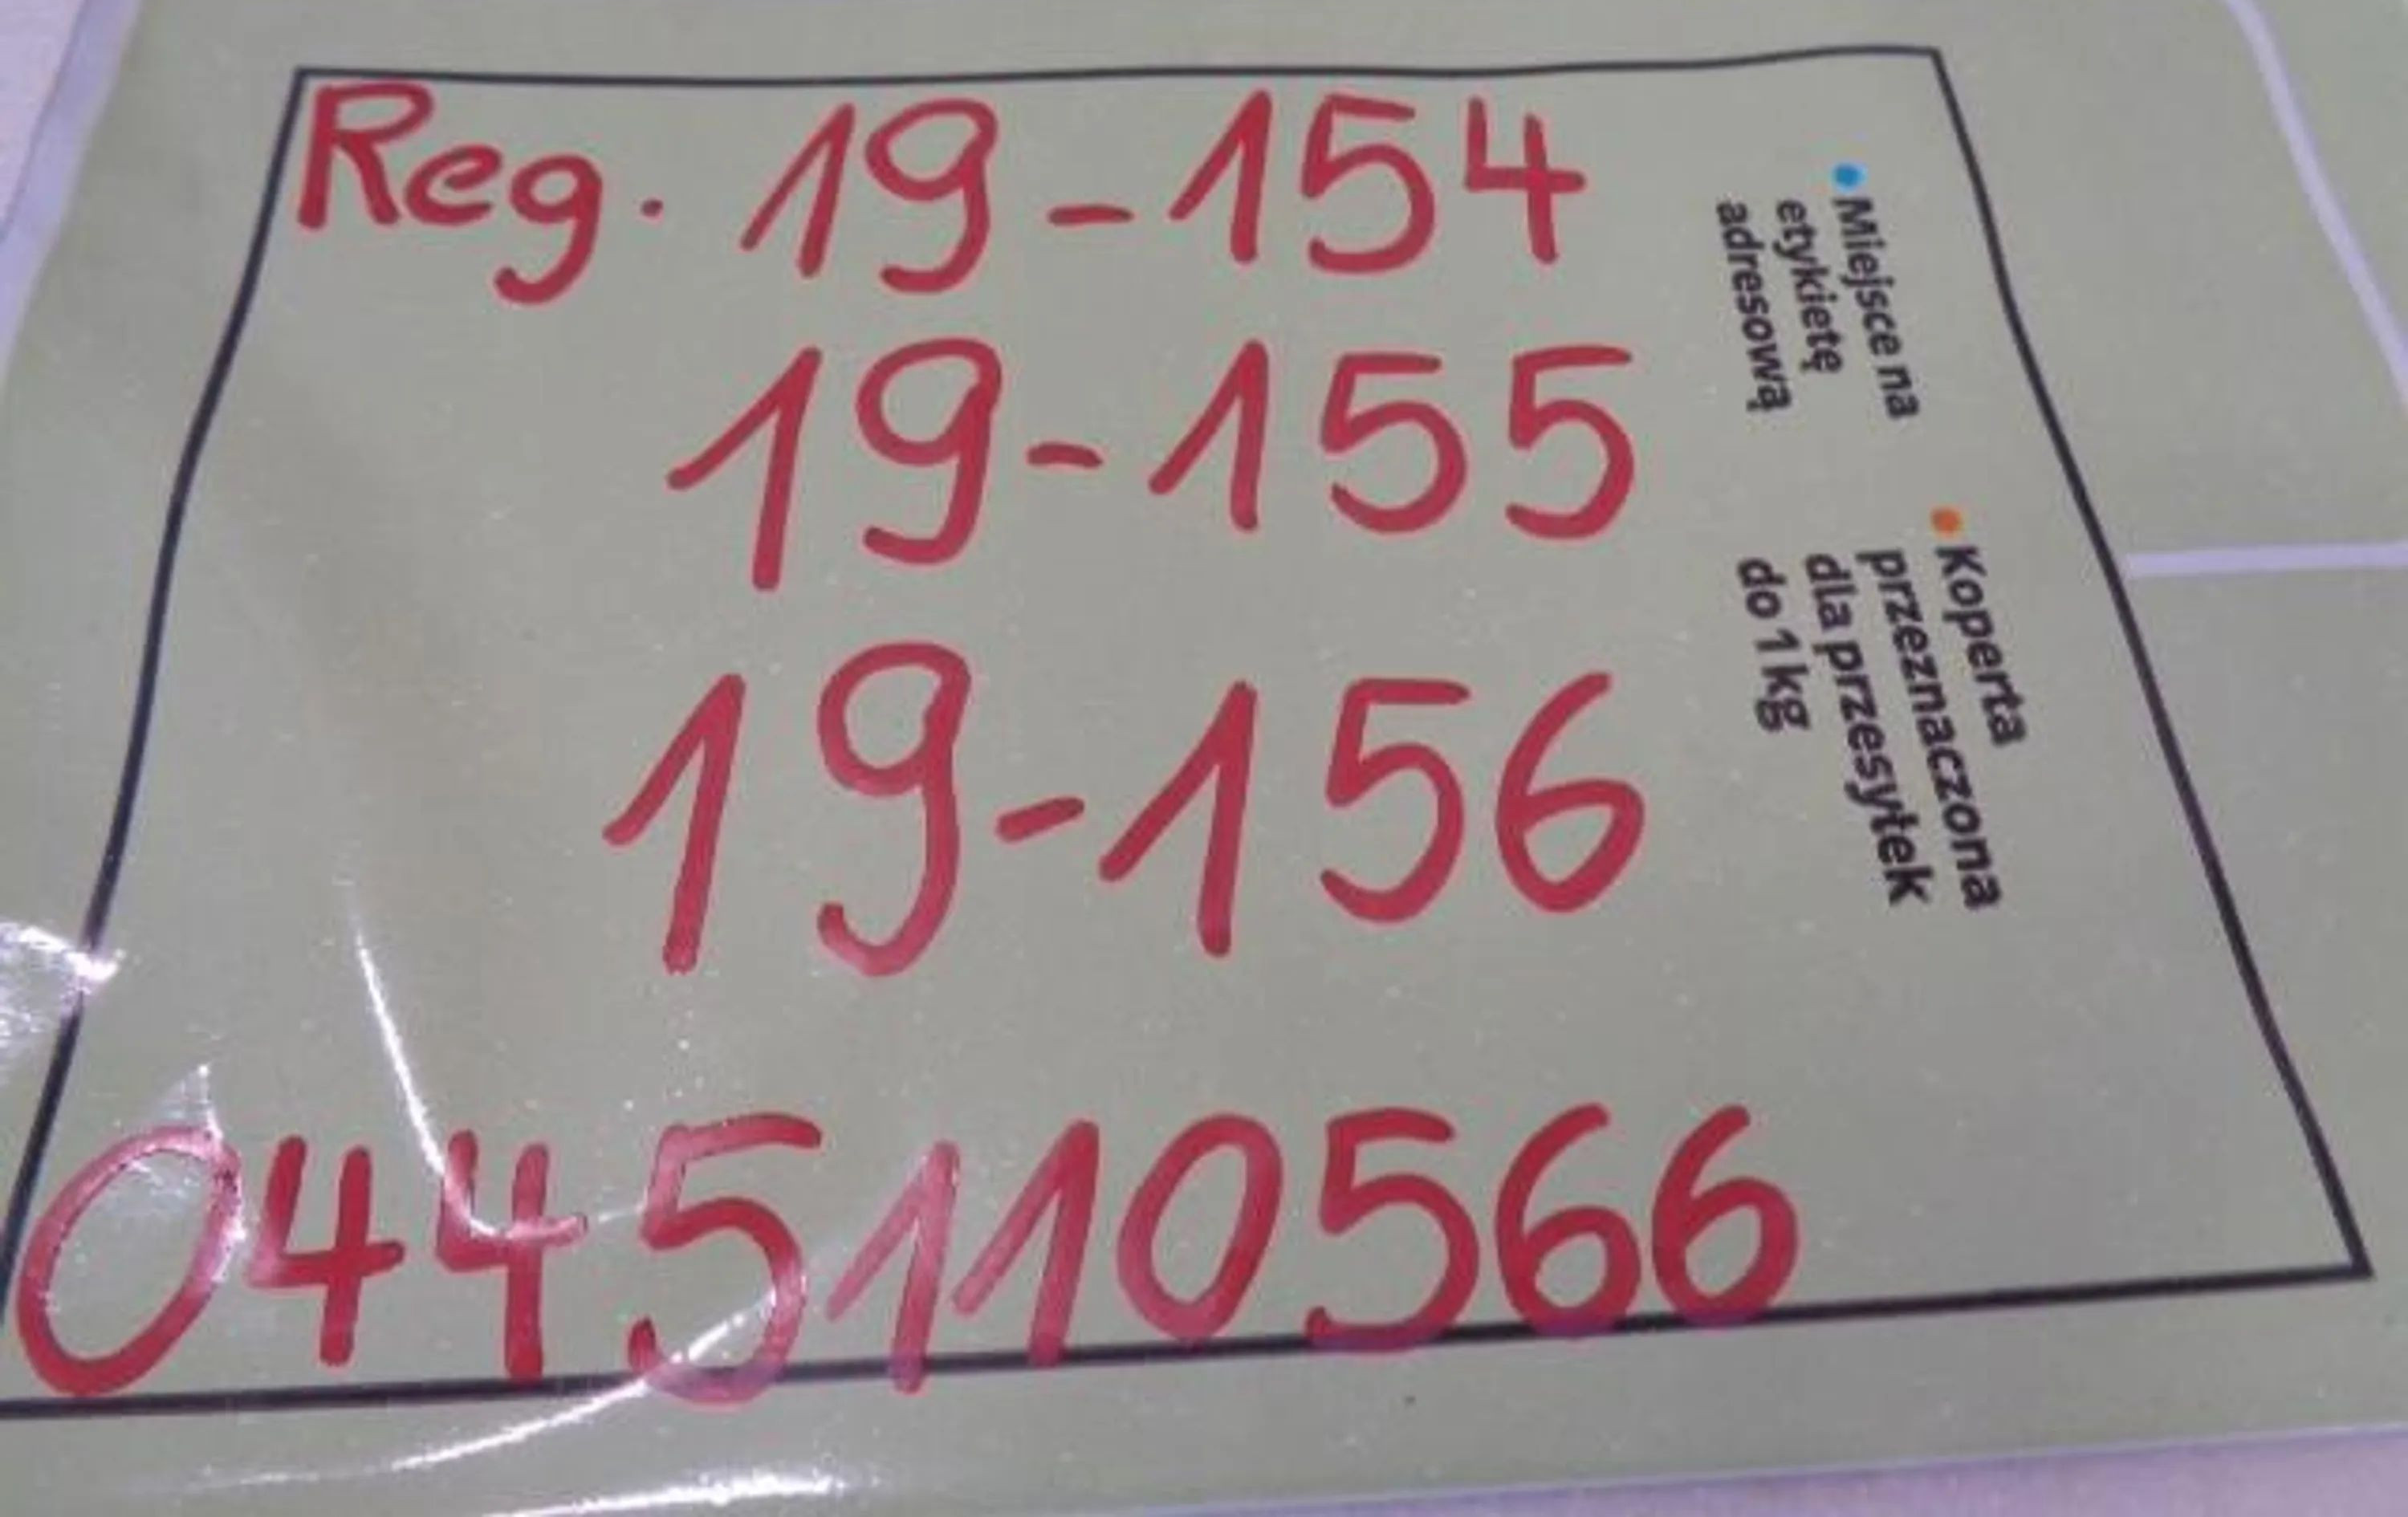 Reg. 19-154
19-155
19-156
0445110566
Miejsce na
etykietę
adresową
Koperta
przeznaczona
dla przesyłek
do 1 kg